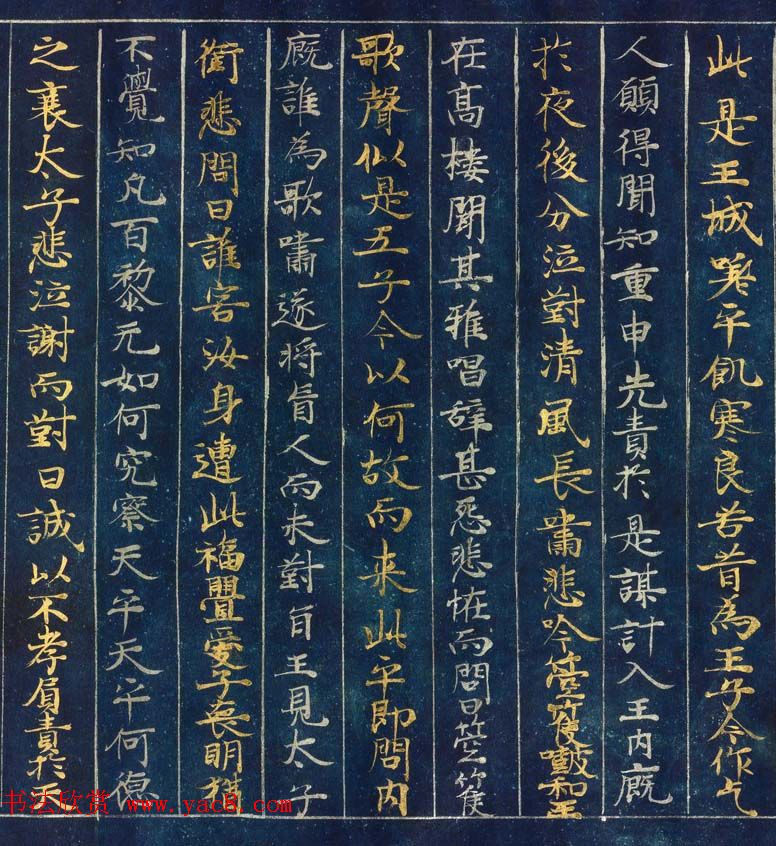 此是王城嗟乎飢寒良苦昔為王子今作乞
人願得聞知重申先責於是謀計入王內廐
於夜後分泣對清風長嘯悲吟箜篌皷和王
在高樓聞其雅唱辭甚怨悲恠而問曰箜篌
歌聲似是五子今以何故而来此乎即問內
廐誰為歌嘯遂将盲人而来對旨王見太子
銜悲問曰誰害汝身遭此福舋愛子喪明猶
不覺知凡百黎元如何究察天乎天乎何德
之襄太子悲泣謝而對曰誠以不孝負責於
书法欣赏 www.yac8.com